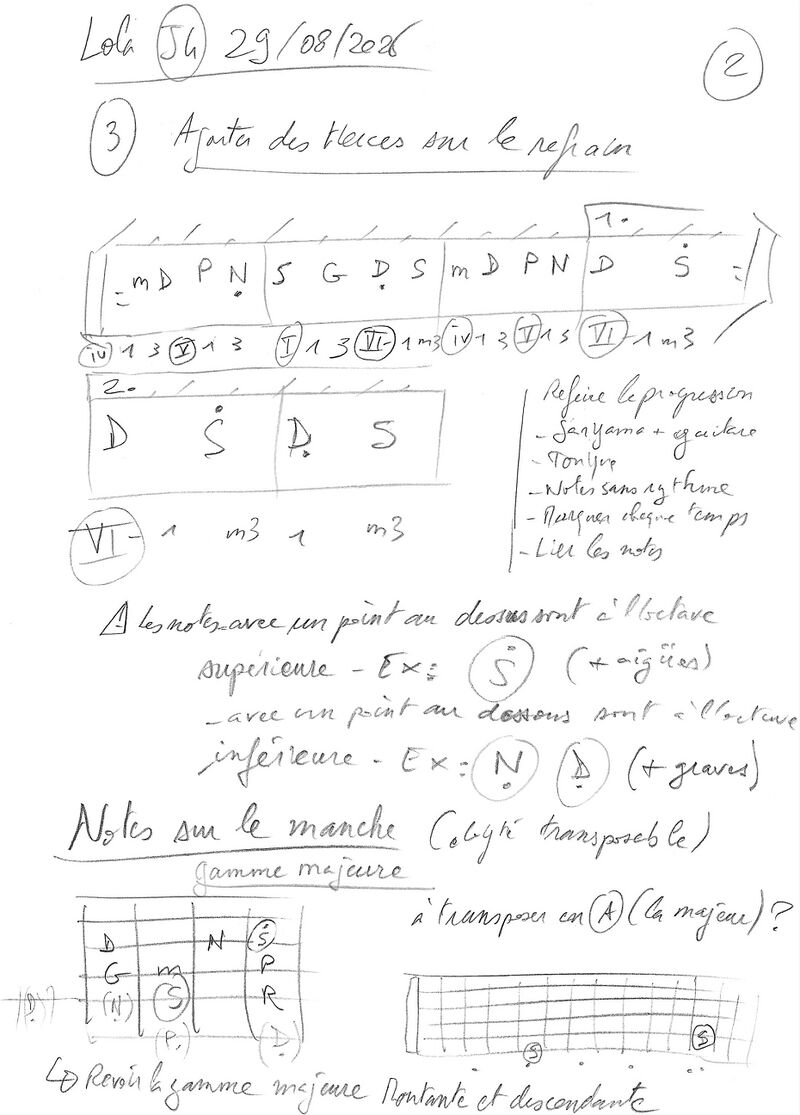 Lola J4 29/08/2026
2
3 Ajouter des tierces sur le refrain
1.
mD P Ṇ S G Ḍ S m D P N D Ṡ
iv 1 3 V 1 3 I 1 3 VI- 1 m3 iv 1 3 V 1 3 VI- 1 m3
2.
D Ṡ Ḍ S
VI- 1 m3 1 m3
Refaire la progression
- Sargama + guitare
- Tonique
- Notes sans rythme
- Marquer chaque temps
- Lier les notes
⚠ Les notes avec un point au dessus sont à l'octave
supérieure - Ex : Ṡ (+ aigües)
- avec un point au dessous sont à l'octave
inférieure - Ex : Ṇ Ḍ (+ graves)
Notes sur le manche (doigté transposable)
gamme majeure
à transposer en A (la majeur) ?
D N Ṡ
G m P
(Ḍ)? (Ṇ) S R
(P.) (Ḍ)
S
S
↳ Revoir la gamme majeure montante et descendante